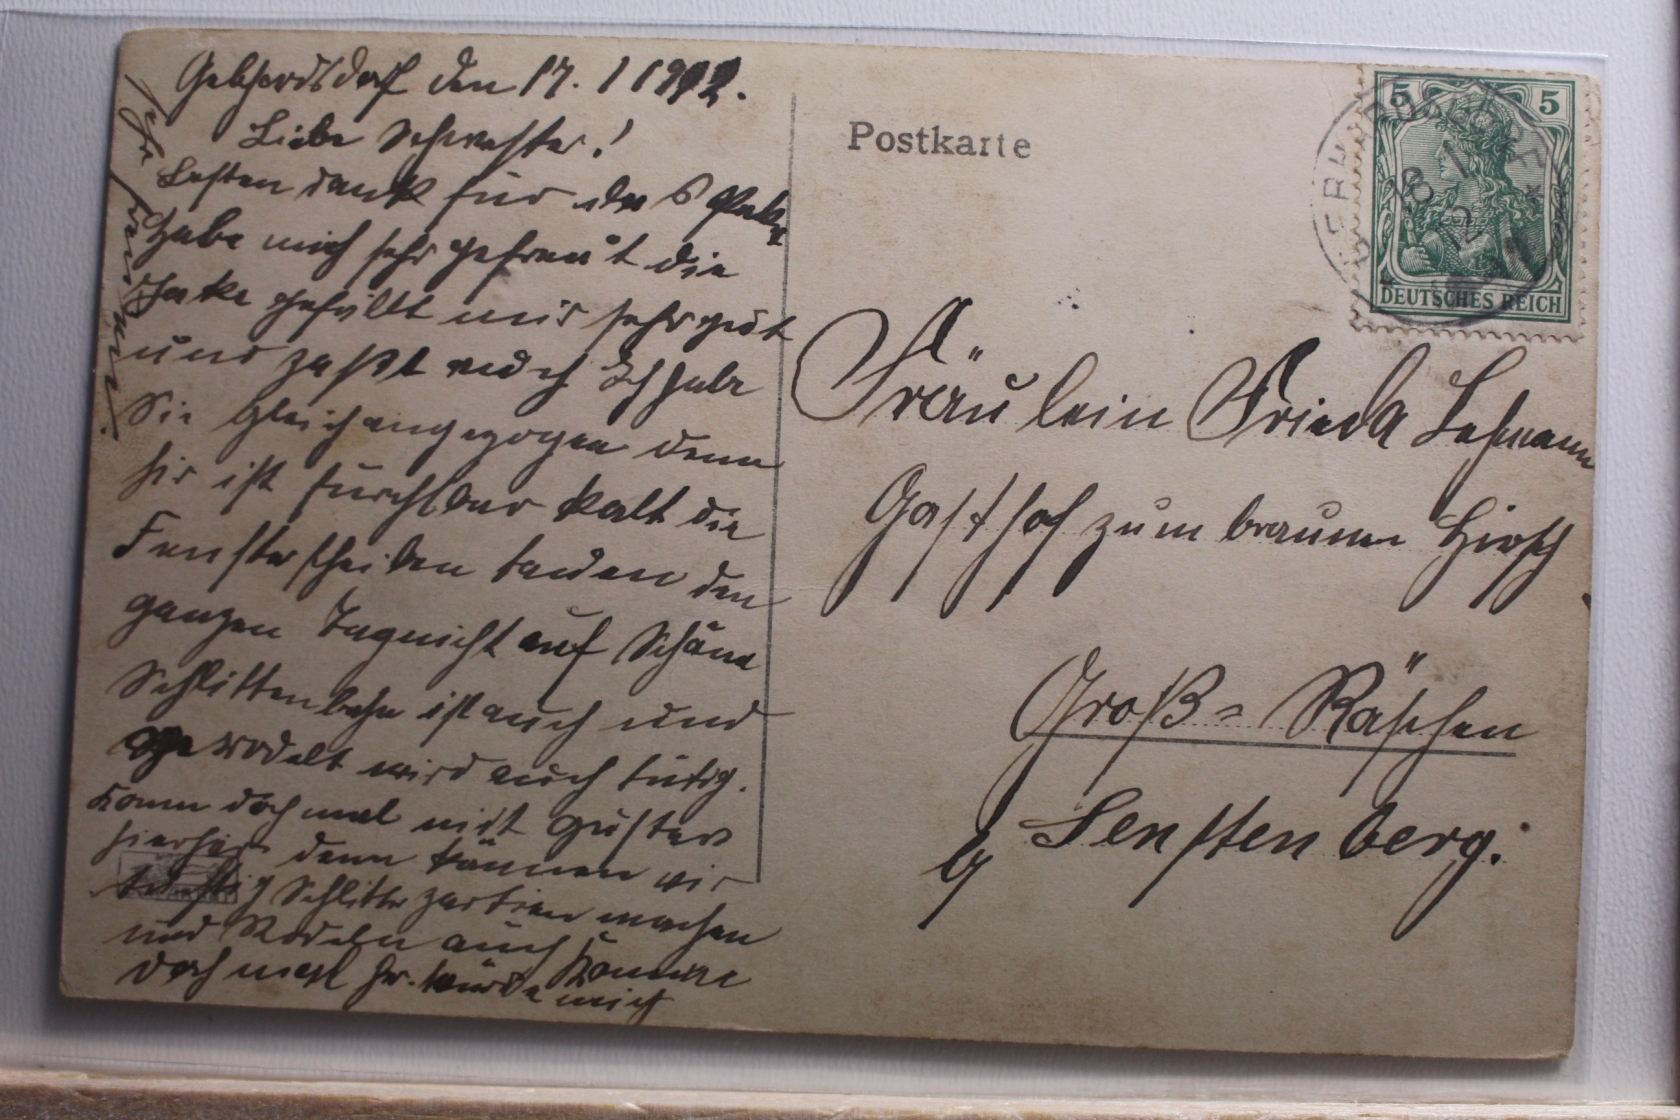 Gebhardsdorf den 17. 1 1912.
Liebe Schwester!
Besten dank für das Paket
habe mich sehr gefreut die
Jake gefellt mir sehr gut
und paßt auch Ich habe
Sie gleich angezogen denn
hir ist furchtbar kalt die
Fensterscheiben tauen den
ganzen Tag nicht auf Schöne
Schlittenbahn ist auch und
gerodelt wird auch tütig.
Komm doch mal mit Gustav
hierher denn können wir
Schlitte partien machen
und Rodeln auch Komme
doch mal her. würde mich
sehr freuen.
Postkarte
5 5
DEUTSCHES REICH
18 1
12
Fräulein Frieda Lehmann
Gasthof zum braunen Hirsch
Groß-Räschen
b/ Senftenberg.